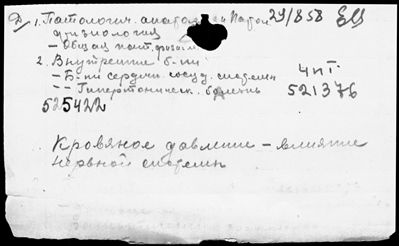 Д 1. Патологич. анатомия и патол 29/858
физиология
- Общая пат. физиол
2. Внутренние б-ни
- Б-ни сердечн. сосуд. системы
- - Гипертоническ. болезнь
чит.
521376
525422
Кровяное давление - влияние
нервной системы